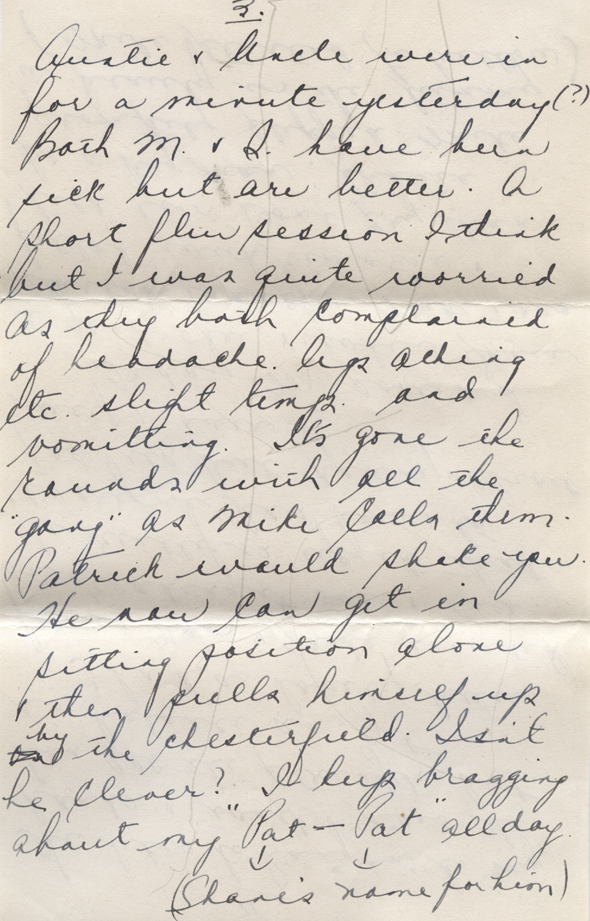 3.
Auntie & Uncle were in
for a minute yesterday (?)
Both M. & S. have been
sick but are better. A
short flu session I think
but I was quite worried
as they both complained
of headache. legs aching
etc. slight temp. and
vomitting. It's gone the
rounds with all the
"gang" as Mike calls them.
Patrick would shake you.
He now can get in
sitting position alone
& then pulls himself up
by the chesterfield. Isn't
he clever? I keep bragging
about my "Pat — Pat" all day.
(Shane's name for him)